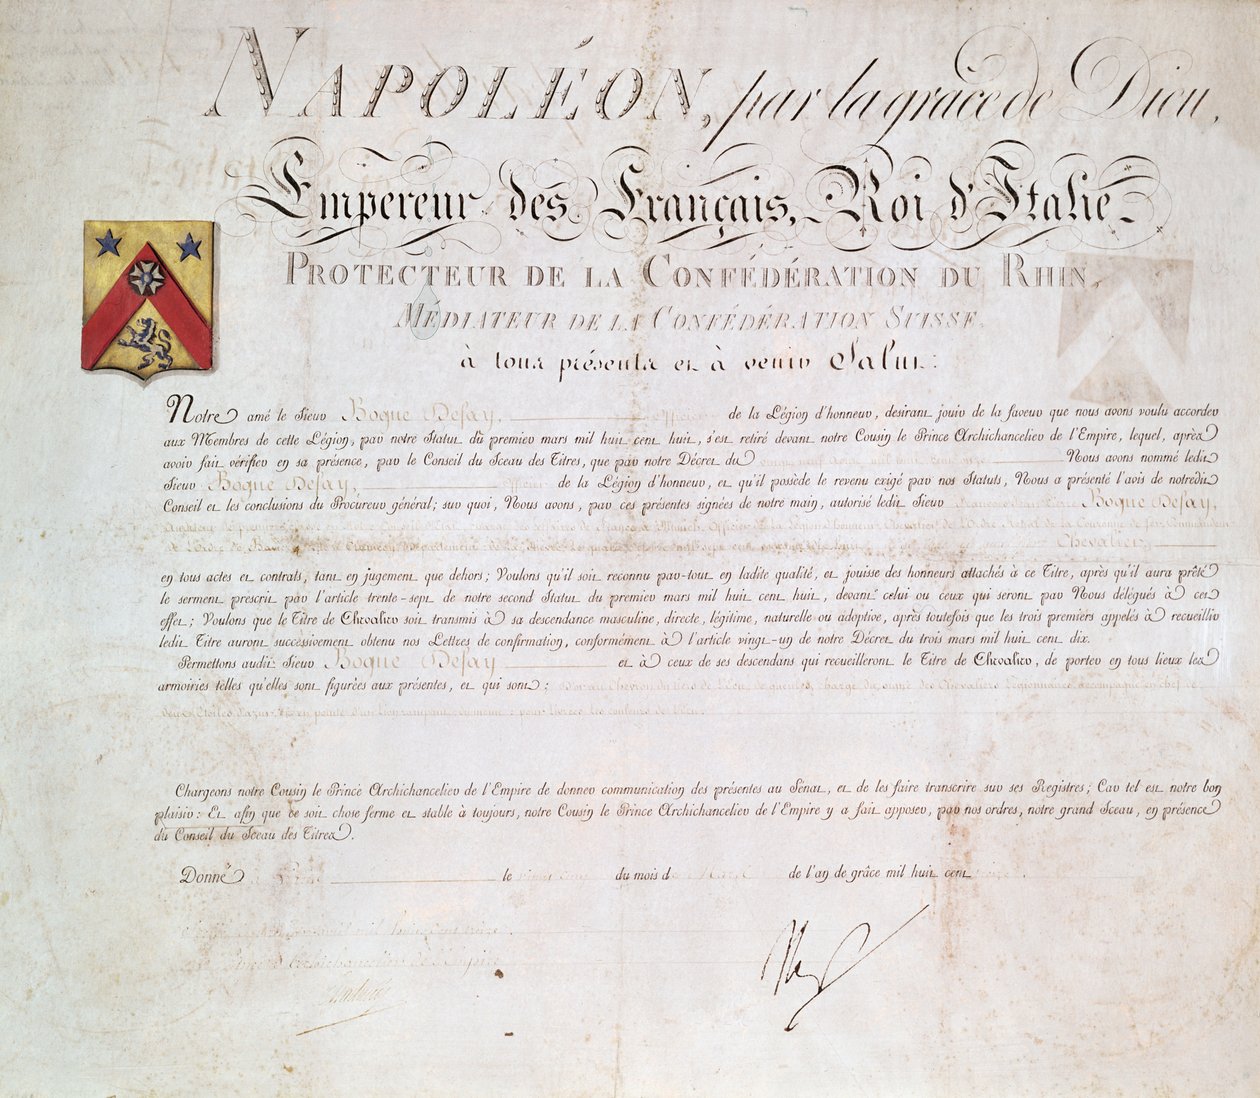 NAPOLÉON, par la grâce de Dieu,
Empereur des Français, Roi d'Italie,
PROTECTEUR DE LA CONFÉDÉRATION DU RHIN,
MÉDIATEUR DE LA CONFÉDÉRATION SUISSE,
à tous présents et à venir Salut:
Notre amé le Sieur Bogne Defay, officier de la Légion d'honneur, desirant jouir de la faveur que nous avons voulu accorder
aux Membres de cette Légion, par notre Statut du premier mars mil huit cent huit, s'est retiré devant notre Cousin le Prince Archichancelier de l'Empire, lequel, après
avoir fait vérifier en sa présence, par le Conseil du Sceau des Titres, que par notre Décret du Nous avons nommé ledit
Sieur Bogne Defay, officier de la Légion d'honneur, et qu'il possède le revenu exigé par nos Statuts, Nous a présenté l'avis de notredit
Conseil et les conclusions du Procureur général; sur quoi, Nous avons, par ces présentes signées de notre main, autorisé ledit Sieur Bogne Defay,
Chevalier,
en tous actes et contrats, tant en jugement que dehors; Voulons qu'il soit reconnu par-tout en ladite qualité, et jouisse des honneurs attachés à ce Titre, après qu'il aura prêté
le serment prescrit par l'article trente-sept de notre second Statut du premier mars mil huit cent huit, devant celui ou ceux qui seront par Nous délégués à cet
effet; Voulons que le Titre de Chevalier soit transmis à sa descendance masculine, directe, légitime, naturelle ou adoptive, après toutefois que les trois premiers appelés à recueillir
ledit Titre auront successivement obtenu nos Lettres de confirmation, conformément à l'article vingt-un de notre Décret du trois mars mil huit cent dix.
Permettons audit Sieur Bogne Defay et à ceux de ses descendans qui recueilleront le Titre de Chevalier, de porter en tous lieux les
armoiries telles qu'elles sont figurées aux présentes, et qui sont:
Chargeons notre Cousin le Prince Archichancelier de l'Empire de donner communication des présentes au Sénat, et de les faire transcrire sur ses Registres; Car tel est notre bon
plaisir: Et afin que ce soit chose ferme et stable à toujours, notre Cousin le Prince Archichancelier de l'Empire y a fait apposer, par nos ordres, notre grand Sceau, en présence
du Conseil du Sceau des Titres.
Donné le du mois d de l'an de grâce mil huit cent
mil huit cent treize
Archichancelier de l'Empire